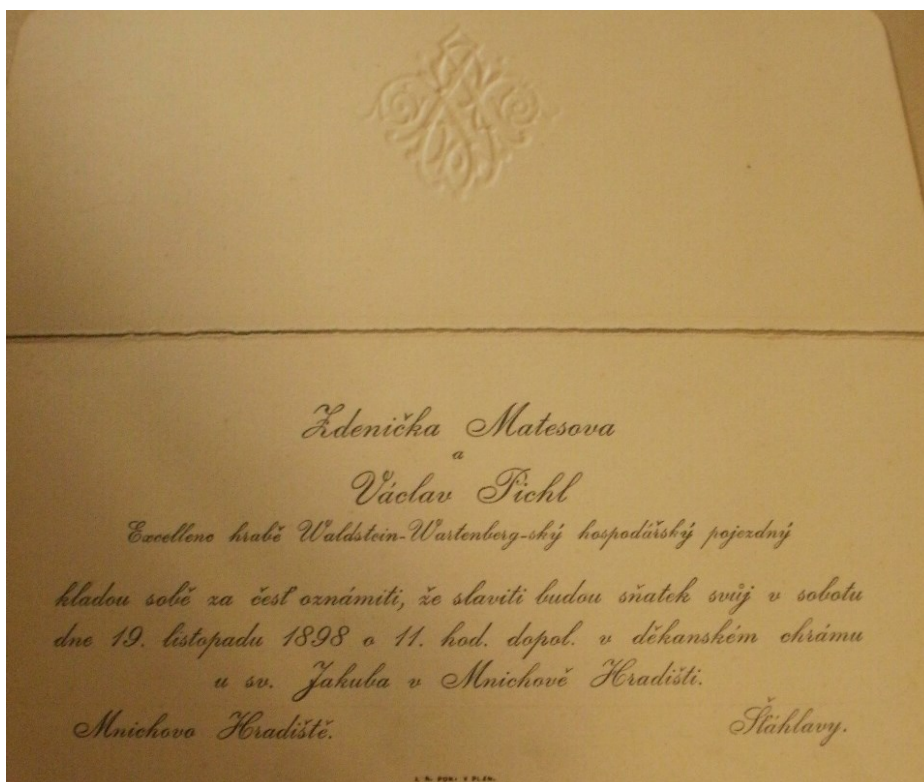 Zdenička Matesova
a
Václav Pichl
Excellenc hrabě Waldstein-Wartenberg-ský hospodářský pojezdný
kladou sobě za česť oznámiti, že slaviti budou sňatek svůj v sobotu
dne 19. listopadu 1898 o 11. hod. dopol. v děkanském chrámu
u sv. Jakuba v Mnichově Hradišti.
Mnichovo Hradiště. Šťáhlavy.